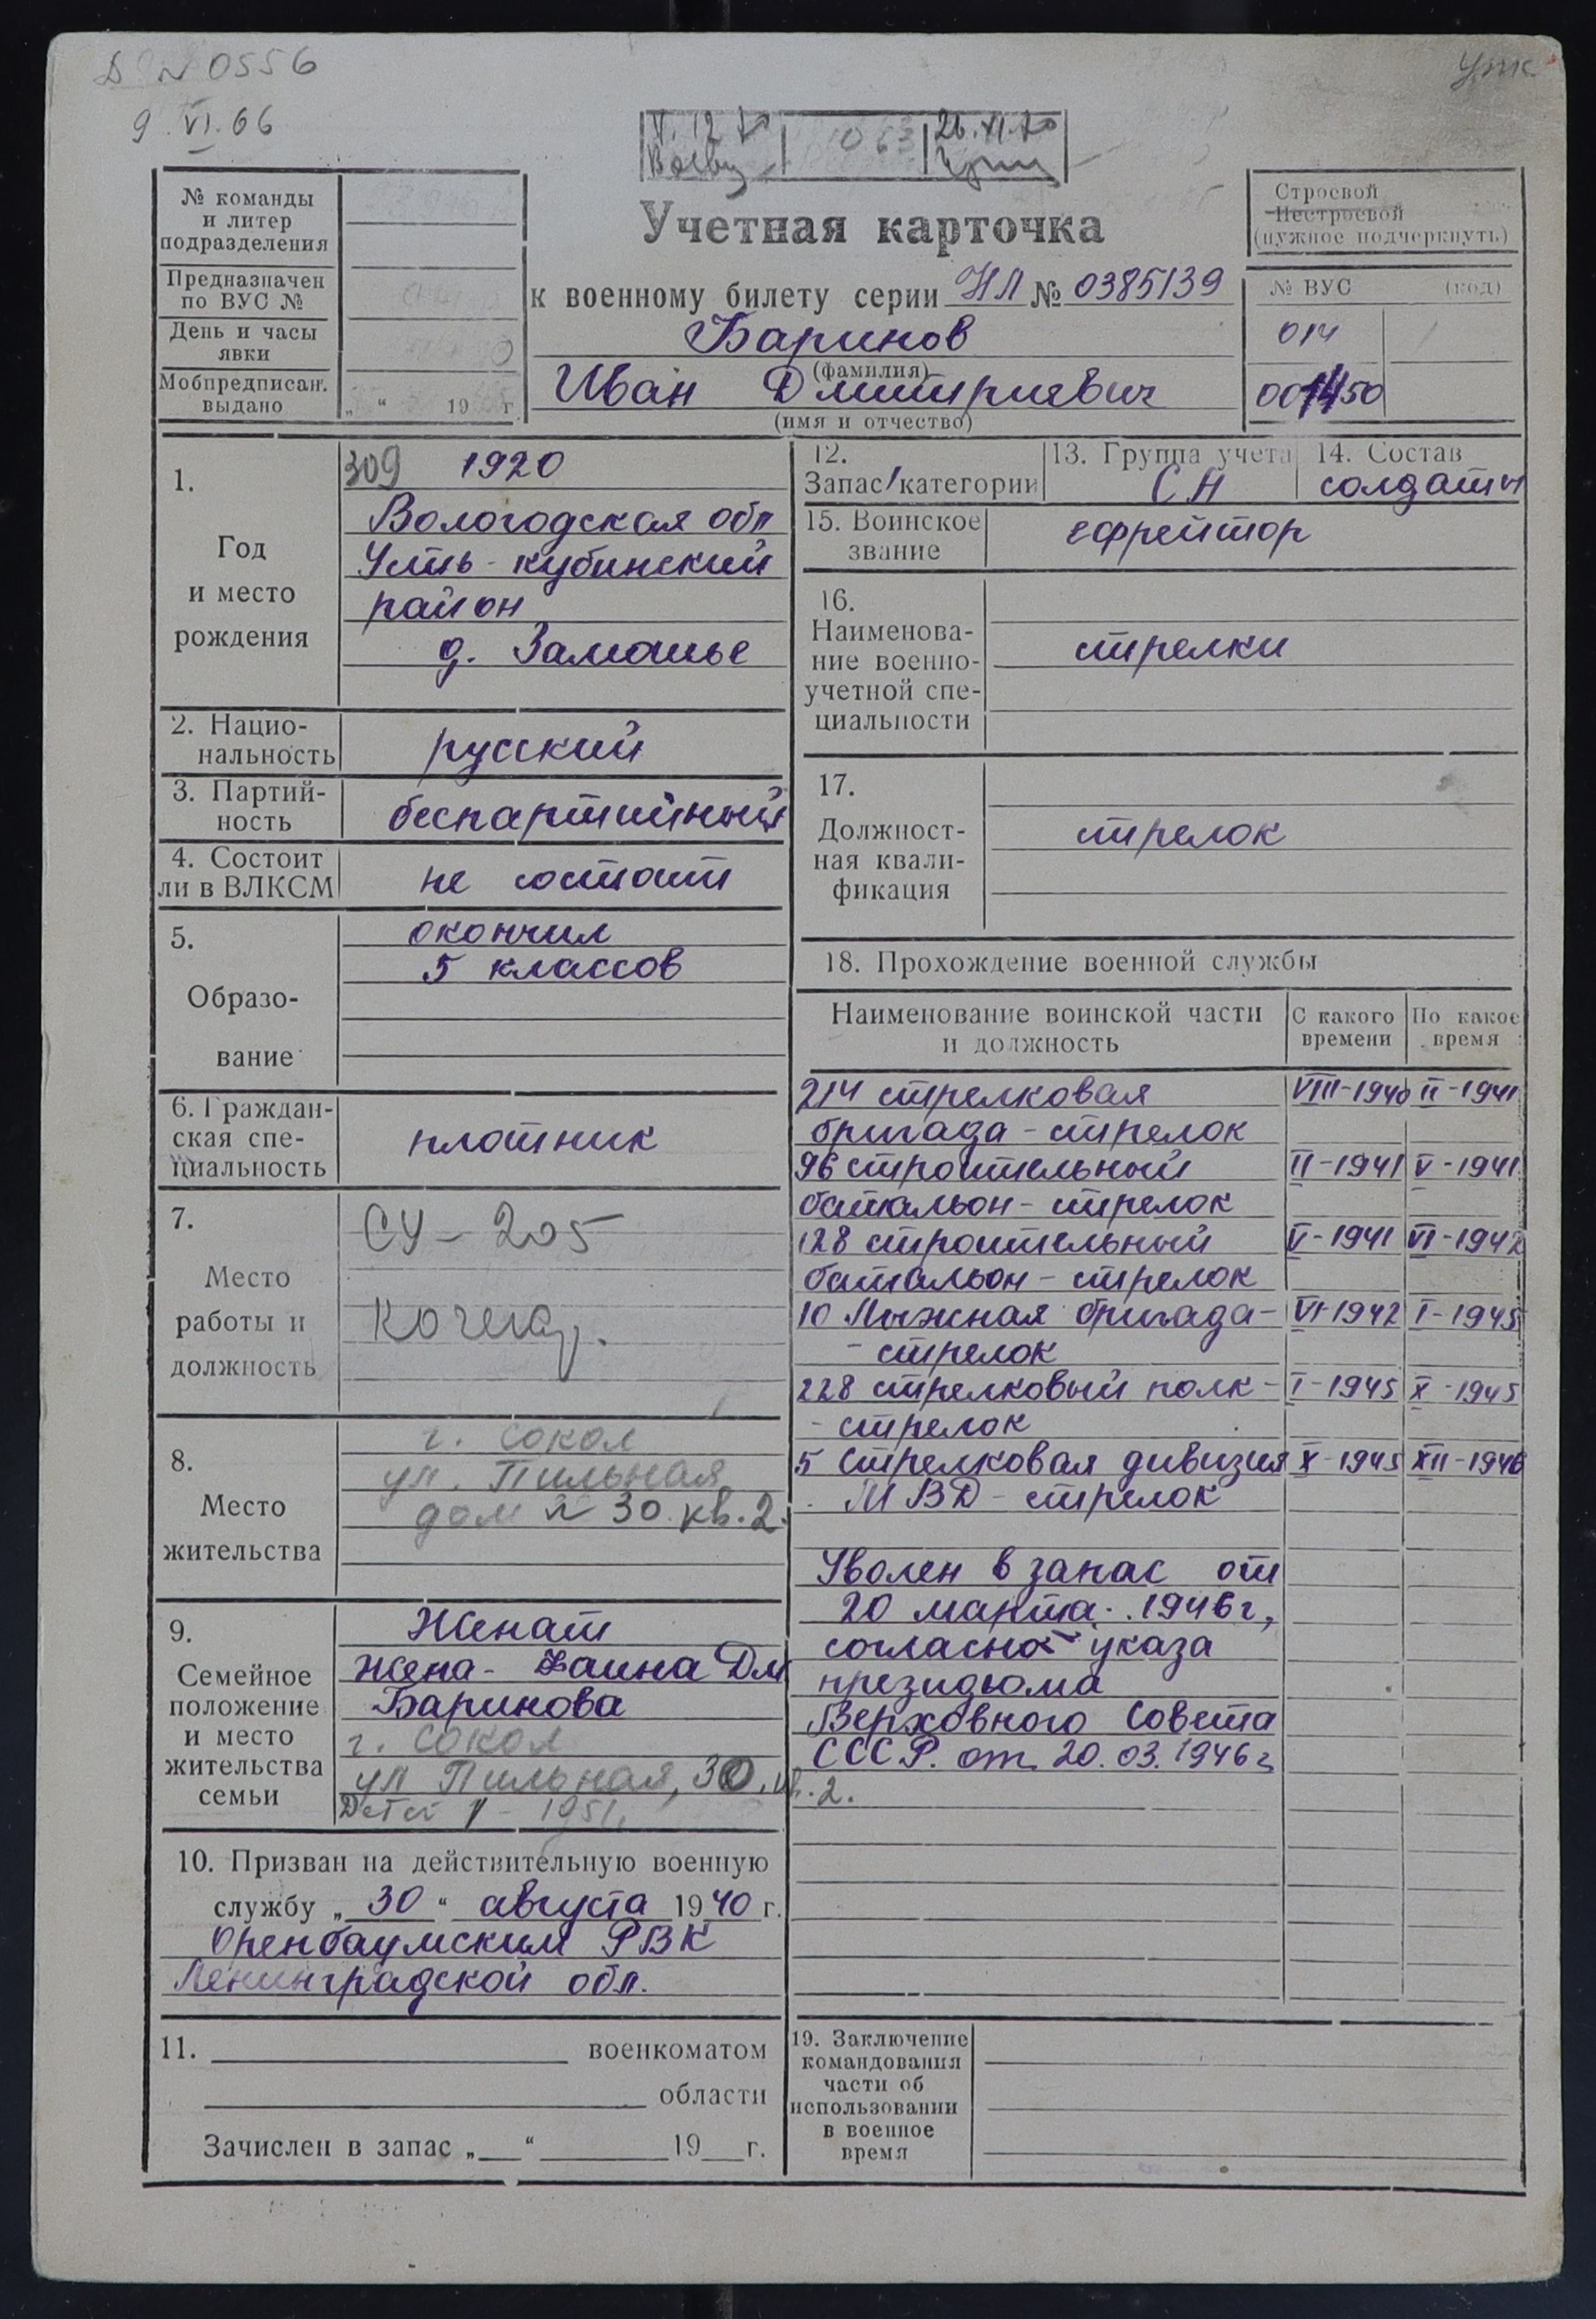 № 0556
9.VI.66
Строевой
Нестроевой
(нужное подчеркнуть)
№ команды
и литер
подразделения
Предназначен
по ВУС №
День и часы
явки
Мобпредписан.
выдано
„ “ 19 г.
Учетная карточка
к военному билету серии НЛ № 0385139
Баринов
(фамилия)
Иван Дмитриевич
(имя и отчество)
№ ВУС (код)
014
001450
1.
Год
и место
рождения
309 1920
Вологодская обл
Усть-Кубинский
район
д. Замошье
2. Нацио-
нальность
русский
3. Партий-
ность
беспартийный
4. Состоит
ли в ВЛКСМ
не состоит
5.
Образо-
вание
окончил
5 классов
6. Граждан-
ская спе-
циальность
плотник
7.
Место
работы и
должность
СУ-205
Кочегар.
8.
Место
жительства
г. Сокол
ул. Пильная
дом № 30 кв. 2.
9.
Семейное
положение
и место
жительства
семьи
Женат
жена - Фаина Дм
Баринова
г. Сокол
ул Пильная, 30, кв. 2.
Детей 1 - 1951.
10. Призван на действительную военную
службу „30“ августа 1940 г.
Оренбаумским РВК
Ленинградской обл.
11. военкоматом
области
Зачислен в запас „ “ 19 г.
12.
Запас/категории
13. Группа учета
СА
14. Состав
солдаты
15. Воинское
звание
ефрейтор
16.
Наименова-
ние военно-
учетной спе-
циальности
стрелки
17.
Должност-
ная квали-
фикация
стрелок
18. Прохождение военной службы
Наименование воинской части
и должность
С какого
времени
По какое
время
214 стрелковая VIII-1940 II-1941
бригада - стрелок
96 строительный II-1941 V-1941
батальон - стрелок
128 строительный V-1941 VI-1942
батальон - стрелок
10 Лыжная бригада - VI-1942 I-1945
- стрелок
228 стрелковый полк - I-1945 X-1945
- стрелок
5 Стрелковая дивизия X-1945 XII-1946
МВД - стрелок
Уволен в запас от
20 марта 1946 г,
согласно указа
президюма
Верховного Совета
СССР. от 20.03.1946 г
19. Заключение
командования
части об
использовании
в военное
время